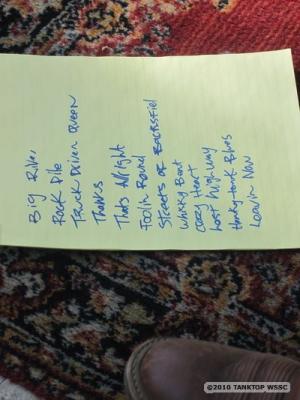 Big River
Rock Pile
Truck Driven Queen
Thanks
Thats Alright
Foolin Round
Streets of Bakersfiel
Whisky Bent
Crazy Heart
Lost highway
Honky-tonk Blues
Leavin Now
©2010 TANKTOP WSSC